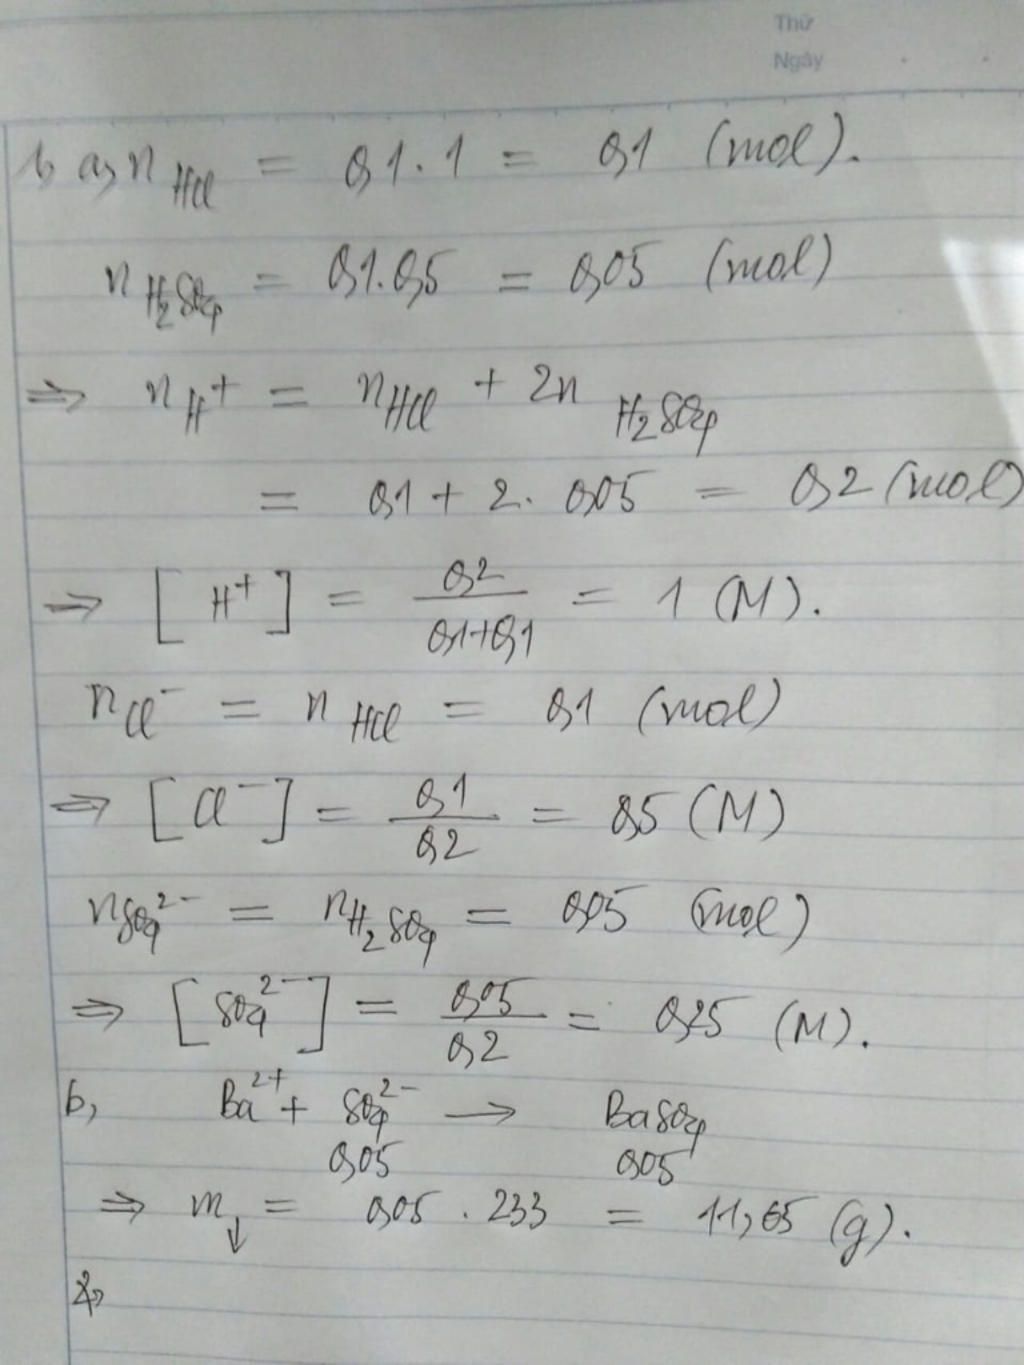 Thứ
Ngày
1, a, n HCl = 0,1 . 1 = 0,1 (mol).
n H₂SO₄ = 0,1 . 0,5 = 0,05 (mol)
⇒ n H⁺ = n HCl + 2n H₂SO₄
= 0,1 + 2 . 0,05 = 0,2 (mol)
⇒ [H⁺] = 0,2 / (0,1+0,1) = 1 (M).
n Cl⁻ = n HCl = 0,1 (mol)
⇒ [Cl⁻] = 0,1 / 0,2 = 0,5 (M)
n SO₄²⁻ = n H₂SO₄ = 0,05 (mol)
⇒ [SO₄²⁻] = 0,05 / 0,2 = 0,25 (M).
b, Ba²⁺ + SO₄²⁻ → BaSO₄
0,05 0,05
⇒ m↓ = 0,05 . 233 = 11,65 (g).
2,